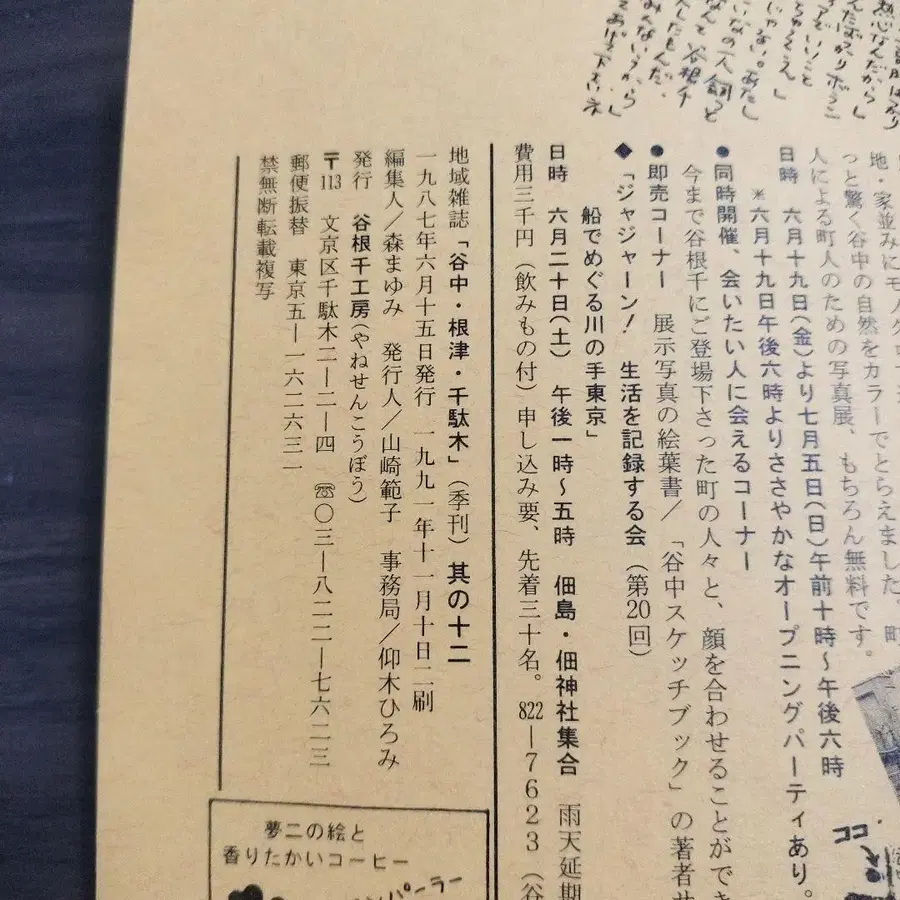 んだばっかりボラン
いなの人飼って
地・家並みにモノ
っと驚く谷中の自然をカラーでとらえました。町
人による町人のための写真展、もちろん無料です。
日時　六月十九日(金)より七月五日(日)午前十時～午後六時
＊六月十九日午後六時よりささやかなオープニングパーティあり。
●同時開催、会いたい人に会えるコーナー
今まで谷根千にご登場下さった町の人々と、顔を合わせることができ
●即売コーナー　展示写真の絵葉書/「谷中スケッチブック」の著者せ
◆「ジャジャーン！　生活を記録する会（第20回）
船でめぐる川の手東京」
日時　六月二十日(土)　午後一時～五時　佃島・佃神社集合　雨天延期
費用三千円（飲みもの付）申し込み要、先着三十名。822―7623（谷
地域雑誌「谷中・根津・千駄木」（季刊）其の十二
一九八七年六月十五日発行　一九九一年十一月十日二刷
編集人/森まゆみ　発行人/山崎範子　事務局/仰木ひろみ
発行　谷根千工房(やねせんこうぼう)
〒113　文京区千駄木二―二―四　☎〇三―八二二―七六二三
郵便振替　東京五―一六二六三一
禁無断転載複写
夢二の絵と
香りたかいコーヒー
パーラー
ココ